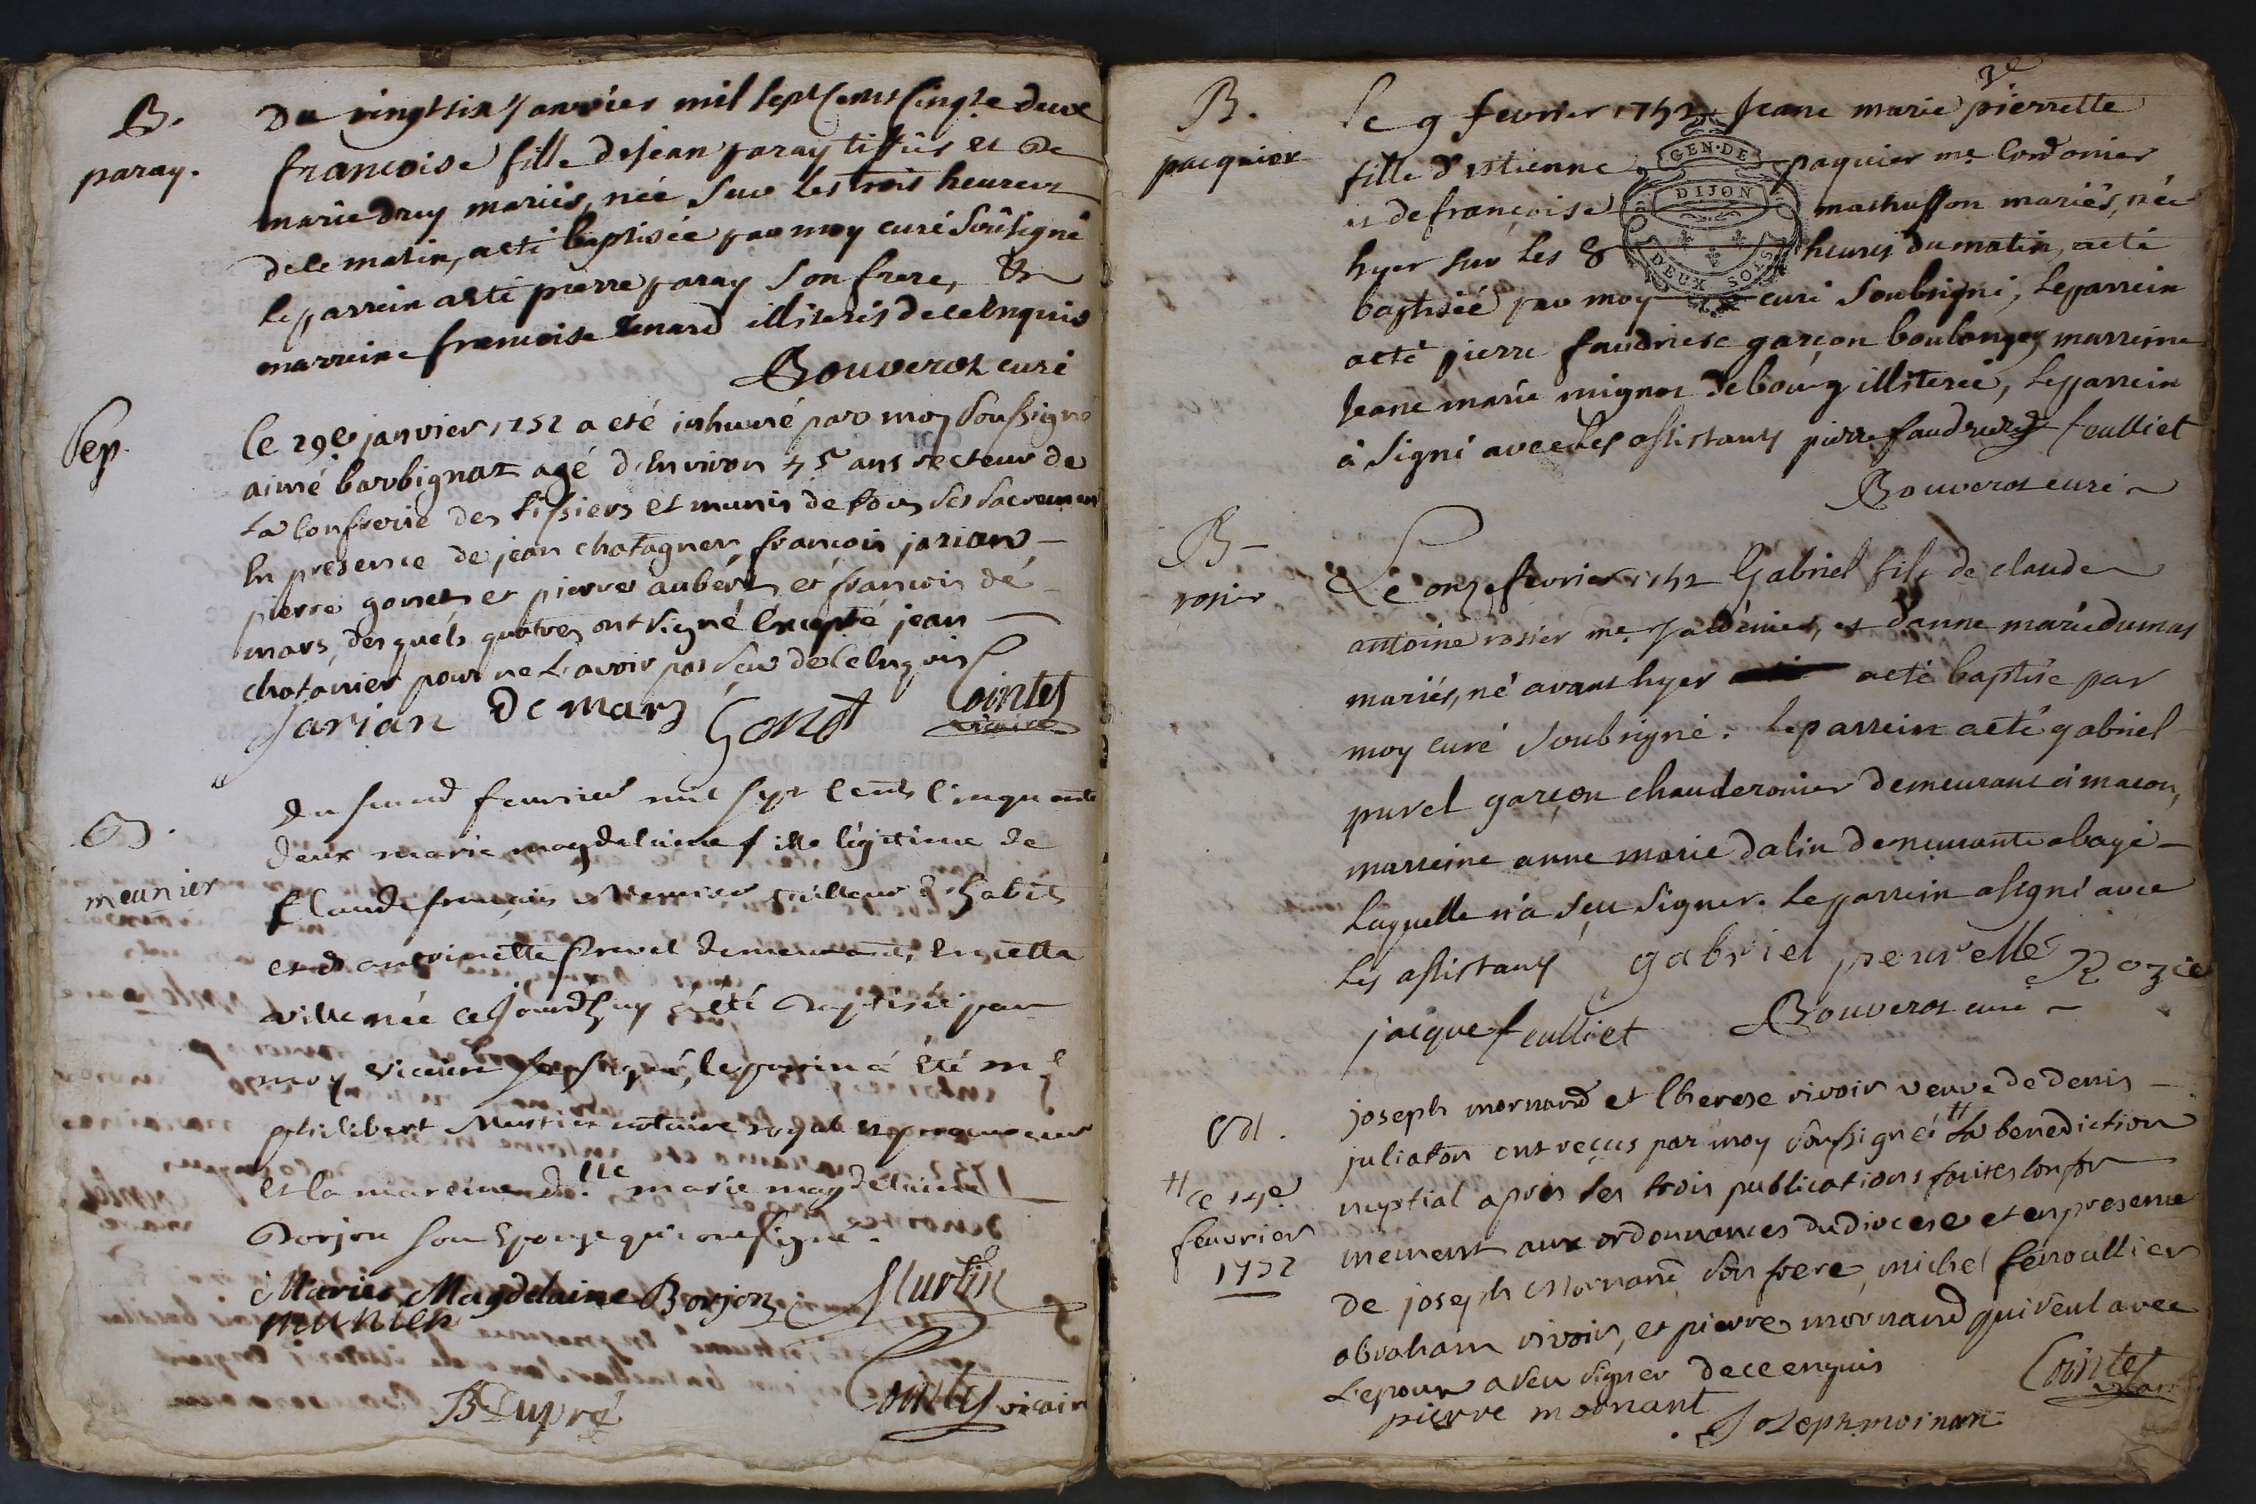 B.
paray.
Du vingt six janvier mil sept cents cinq.te deux
francoise fille de jean paray tissier et de
marie druy mariés, née sur les trois heures
de le matin, a eté baptisée par moy curé soûsigné
le parrein a eté pierre paray son frere, &
marreine francoise illiterés de ce enquis
Bouverot curé
Sep.
Ce 29.e janvier 1752 a eté inhumé par moy soussigné
aimé barbignat agé d'environ 45 ans recteur de
la confrerie des tissiers et munis de tous ses sacremens
en presence de jean chatagner, françois jarian
pierre gonet et pierre aubért et françois dé
mars, desquels quatres ont signé excepté jean
chatanier pour ne l'avoir pas seu de ce enquis
Jarian De mars Gonot Cointet
vicaire
B.
meunier
du second fevrier mil sept cents cinquante
deux marie magdelaine fille légitime de
Claude françois Meunier tailleur d'habits
et d'antoinette demeurant, en cette
ville née ce jourd'huy a été baptisée par
moy vicaire soussigné, le parrin a été m.e
philibert Martin notaire royal et procureur
et la mareine d.lle marie magdelaine
Borjon son Epouse qui ont signé.
Marie Magdelaine Borjon Martin
munier
BDupré Cointet vicair
3e
B.
pacquier
Le 9 fevrier 1752 Jeane marie pierrette
fille d'estienne paquier me. Cordonier
et de françoise mathusson mariés, née
hyer sur les 8 heures du matin, a eté
baptisée par moy curé soubsigné, le parrein
a eté pierre faudriese garçon boulonger, marreine
Jeane marie mignot de bourg illiterée, le parrein
à signé avec les assistants pierre faudrier foulliet
Bouverot curé
GEN. DE
DIJON
DEUX SOLS
B
rosier
Le onze fevrier 1752 Gabriel fils de claude
antoine rosier me. jardinier, et d'anne marie dumas
mariés, né avant hyer a eté baptise par
moy curé soubsigné. Le parrein a eté gabriel
purel garçon chauderonier demeurant à macon,
marreine anne marie dalin demeurante a bagé
Laquelle n'a sçu signer. Le parrein a signé avec
les assistants gabriel peurelle Rozié
jacque foulliet Bouverot curé
M.
joseph mornand et therese rivoir veuve de denis
juliaton ont reçus par moy soussigné # la benediction
nuptial apres les trois publications faites confor
mement aux ordonnances du diocese et en presence
de joseph mornand son frere, michel fenoullier
abraham rivoir, et pierre mornand qui seul avec
L'epoux a seu signer de ce enquis
pierre mornant Cointet
Joseph moinan
# ce 14.e
feuvrier
1752